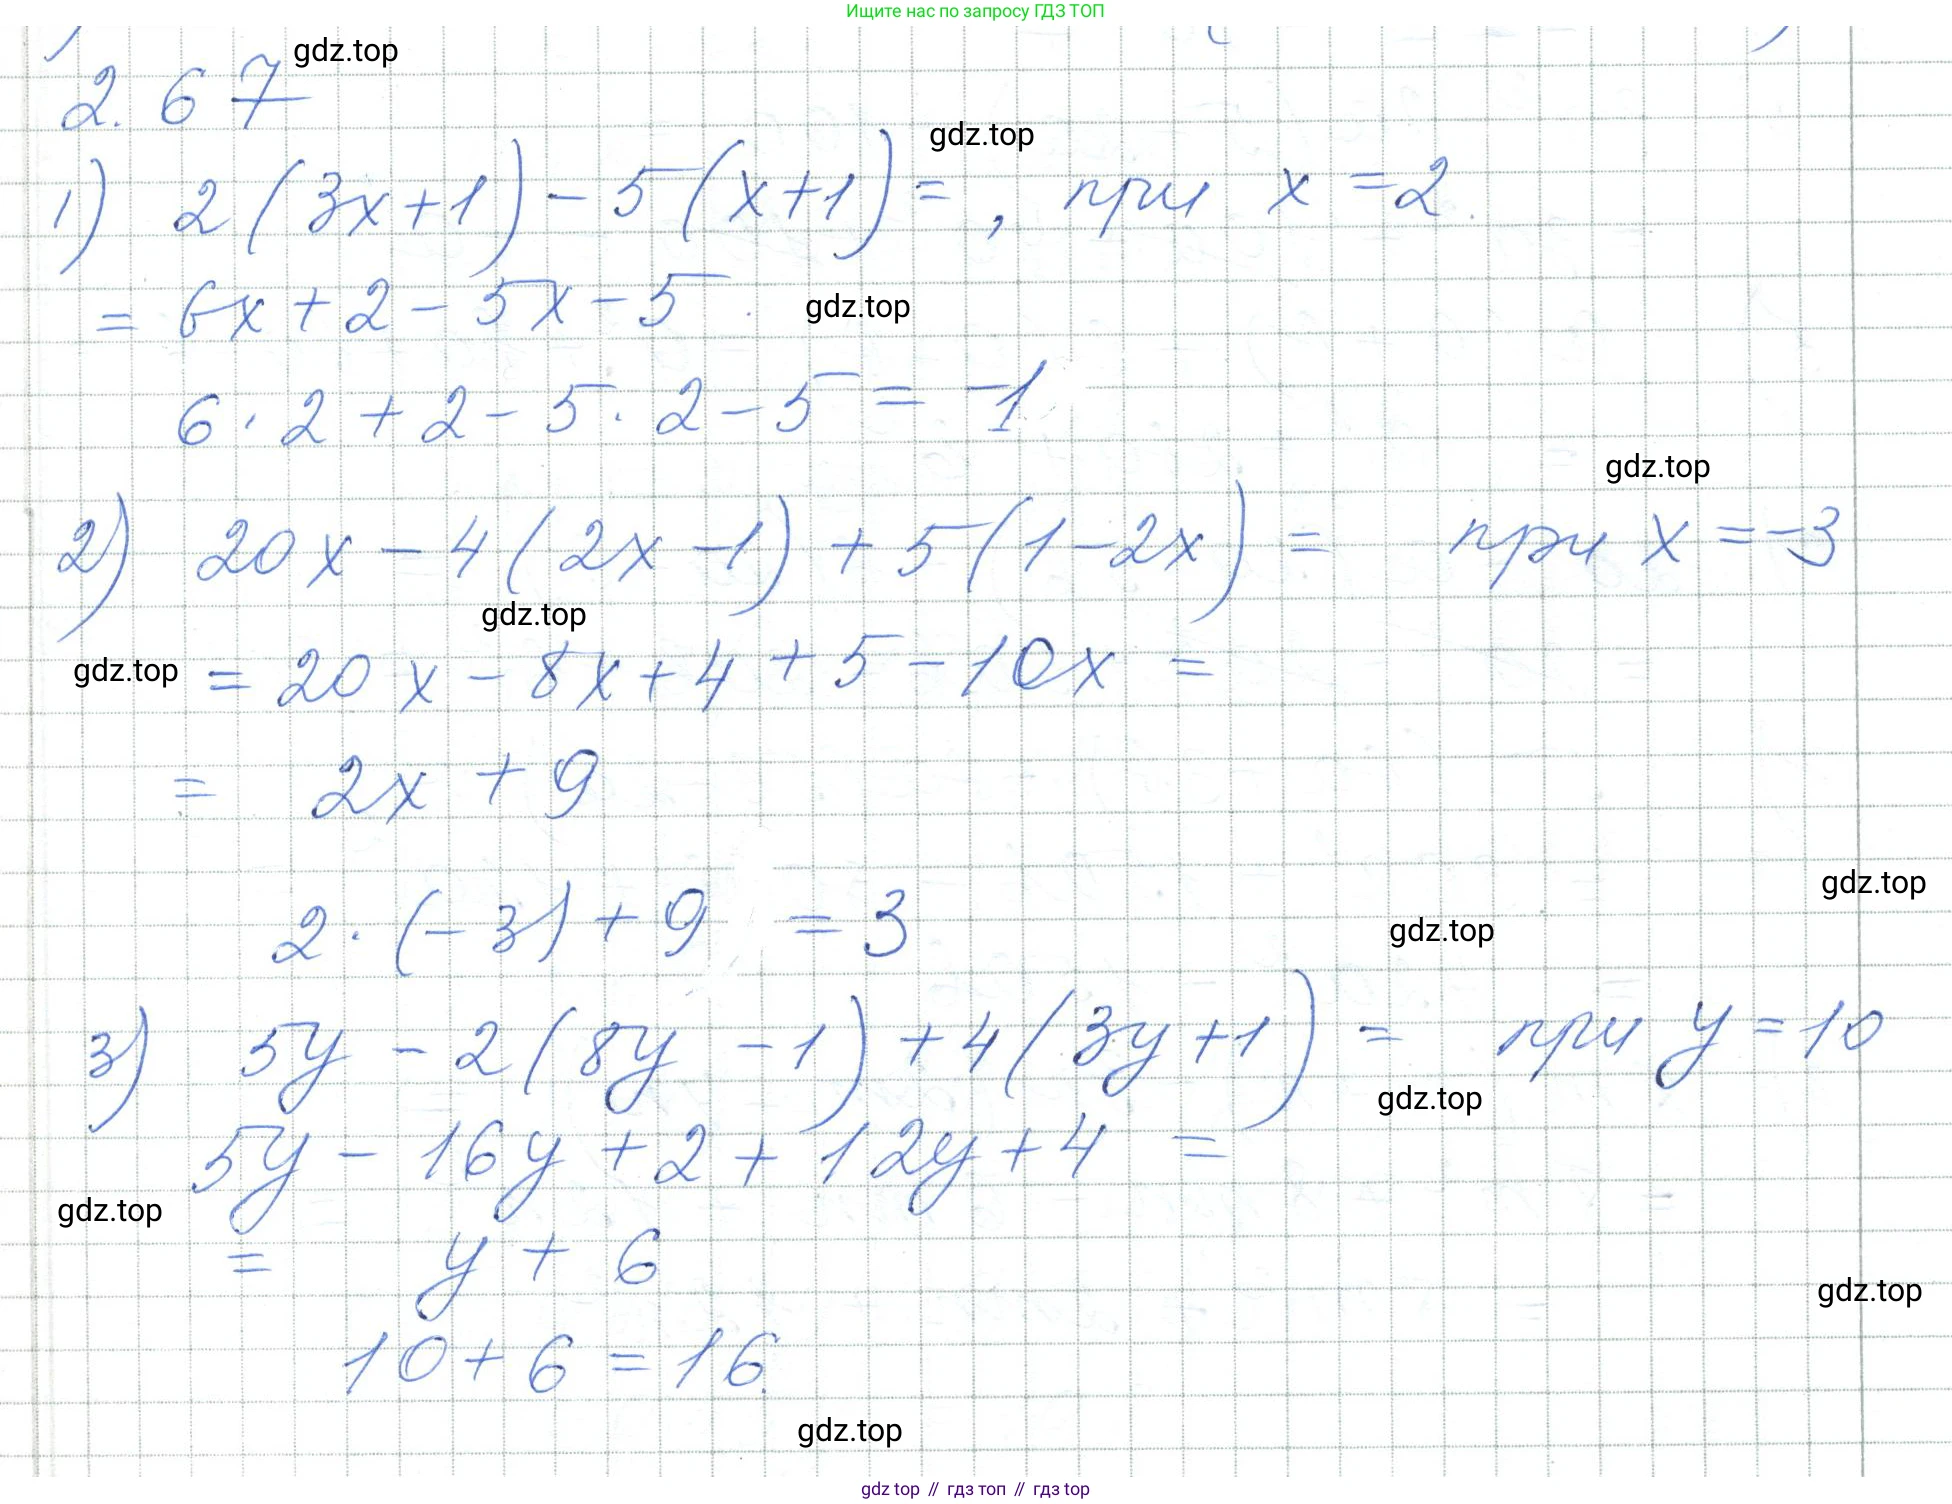 Ищите нас по запросу ГДЗ ТОП
gdz.top
2.67
gdz.top
1) 2(3x+1)-5(x+1)= , при x=2
= 6x+2-5x-5
gdz.top
6·2+2-5·2-5=-1
gdz.top
2) 20x-4(2x-1)+5(1-2x)= при x=-3
gdz.top
gdz.top
=20x-8x+4+5-10x=
= 2x+9
gdz.top
2·(-3)+9 =3
gdz.top
3) 5y-2(8y-1)+4(3y+1)= при y=10
gdz.top
5y-16y+2+12y+4=
gdz.top
= y+6
gdz.top
10+6=16.
gdz.top
gdz top // гдз топ // гдз top